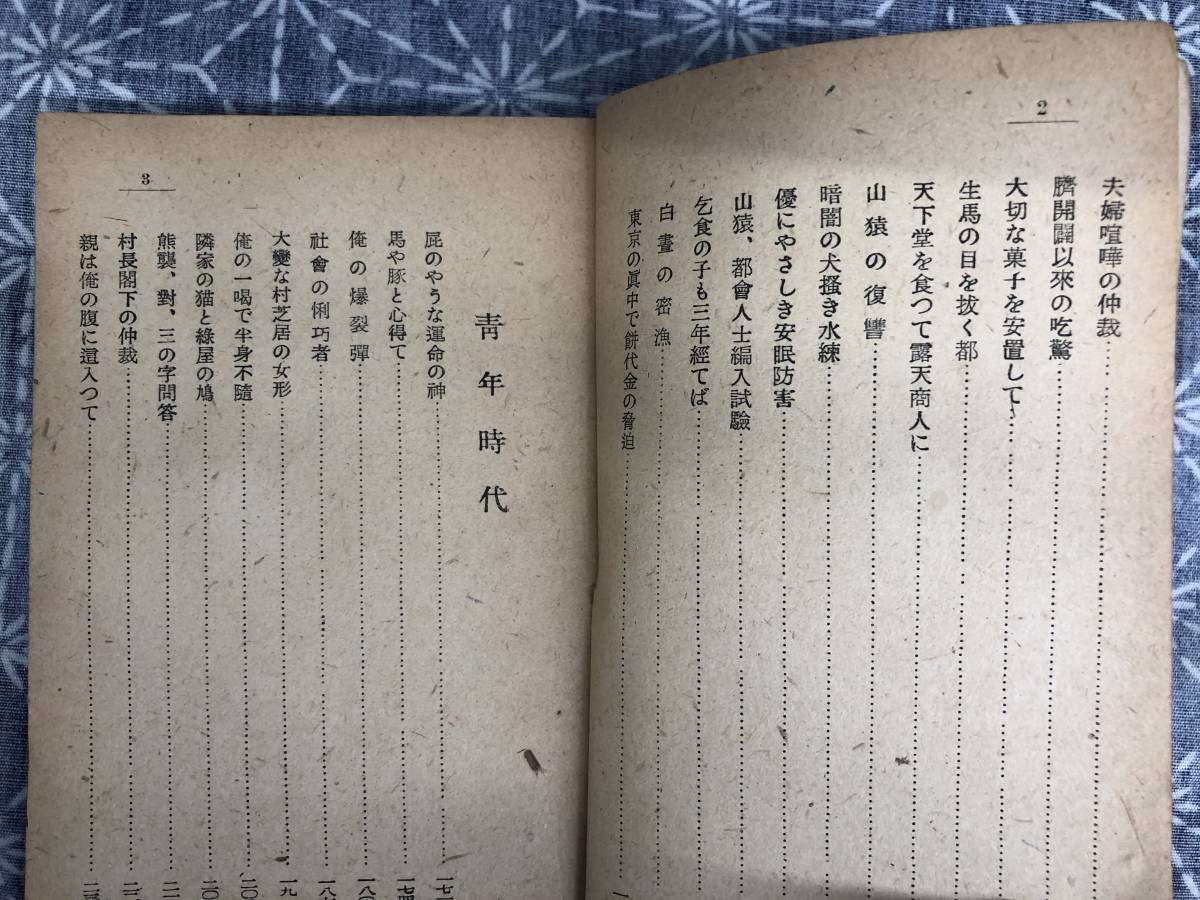 2
夫婦喧嘩の仲裁
臍開闢以來の吃驚
大切な菓子を安置して
生馬の目を抜く都
天下堂を食つて露天商人に
山猿の復讐
暗闇の犬搔き水練
優にやさしき安眠防害
山猿、都會人士編入試驗
乞食の子も三年經てば
白晝の密漁
東京の眞中で餅代金の脅迫
3
靑年時代
屁のやうな運命の神
馬や豚と心得て
俺の爆裂彈
社會の悧巧者
大變な村芝居の女形
俺の一喝で半身不隨
隣家の猫と綠屋の鳩
熊襲、對、三の字問答
村長閣下の仲裁
親は俺の腹に這入つて